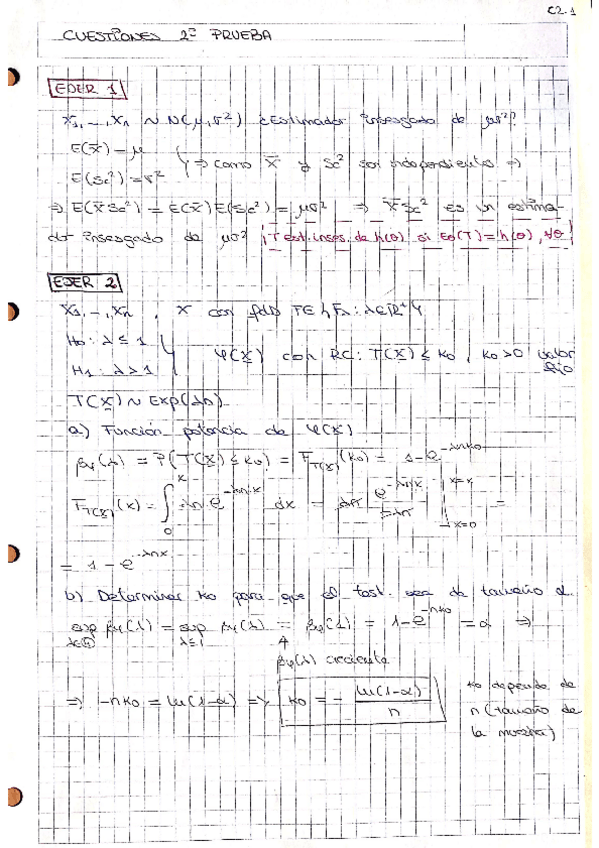 C2.1
CUESTIONES 2ª PRUEBA
EJER 1
X₁,...,Xₙ ~ N(μ,σ²) ¿Estimador insesgado de μσ²?
E(X̄) = μ
E(Sc²) = σ² } ⇒ como X̄ y Sc² son independientes ⇒
⇒ E(X̄Sc²) = E(X̄)E(Sc²) = μσ² ⇒ X̄Sc² es un estima-
dor insesgado de μσ² ¡T est. inses. de h(θ) si Eθ(T) = h(θ), ∀θ!
EJER 2
X₁,...,Xₙ, X con fdD F∈{Fλ: λ∈ℝ⁺}
H₀: λ ≤ 1
H₁: λ > 1 } φ(X) con RC: T(X) ≤ k₀, k₀>0 valor fijo
T(X) ~ Exp(λn)
a) Función potencia de φ(X)
βφ(λ) = P(T(X) ≤ k₀) = F_T(X)(k₀) = 1-e^(-λnk₀)
F_T(X)(x) = ∫₀ˣ λn e^(-λnx) dx = λn e^(-λnx)/(-λn) |ₓ₌₀ˣ⁼ˣ =
= 1 - e^(-λnx)
b) Determinar k₀ para que el test sea de tamaño α.
sup βφ(λ) = sup_(λ≤1) βφ(λ) = βφ(1) = 1-e^(-nk₀) = α ⇒
βφ(λ) creciente
⇒ -nk₀ = ln(1-α) ⇒ k₀ = - ln(1-α)/n
k₀ depende de
n (tamaño de
la muestra)